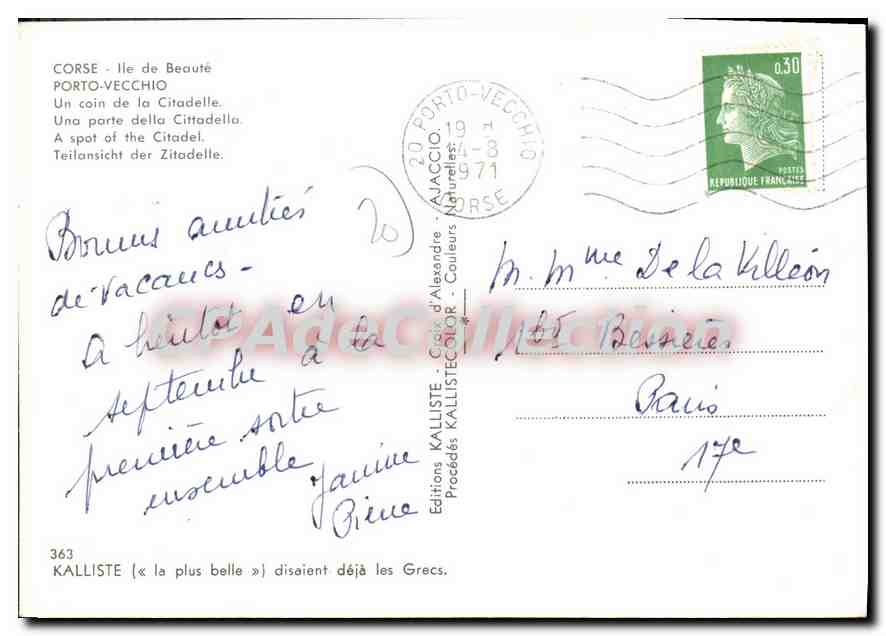 CORSE - Ile de Beauté
PORTO-VECCHIO
Un coin de la Citadelle.
Una parte della Cittadella.
A spot of the Citadel.
Teilansicht der Zitadelle.
20 PORTO-VECCHIO
19 H
4-8
1971
CORSE
0,30
POSTES
REPUBLIQUE FRANÇAISE
20
Bonnes amitiés
de vacances -
A bientôt en
septembre à la
première sortie
ensemble
Janine
Pierre
Editions KALLISTE - Croix d'Alexandre - AJACCIO.
Procédés KALLISTECOLOR - Couleurs Naturelles.
M. Mme De la Villéon
165 Bessières
Paris
17e
CPAdeCollection
363
KALLISTE (« la plus belle ») disaient déjà les Grecs.